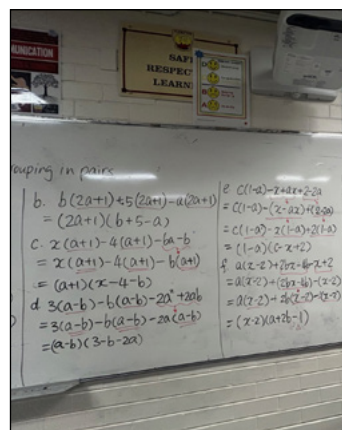 MUNICATION
SAFE
RESPEC
LEARN
D
B
A
ouping in pairs
b. b(2a+1)+5(2a+1)-a(2a+1)
= (2a+1)(b+5-a)
c. x(a+1)-4(a+1)-ba-b
= x(a+1)-4(a+1)-b(a+1)
= (a+1)(x-4-b)
d 3(a-b)-b(a-b)-2a²+2ab
= 3(a-b)-b(a-b)-2a(a-b)
=(a-b)(3-b-2a)
e c(1-a)-x+ax+2-2a
= c(1-a)-(x-ax)+(2-2a)
= c(1-a)-x(1-a)+2(1-a)
= (1-a)(c-x+2)
f. a(x-2)+2bx-4b-x+2
= a(x-2)+(2bx-4b)-(x-2)
= a(x-2)+2b(x-2)-(x-2)
= (x-2)(a+2b-1)